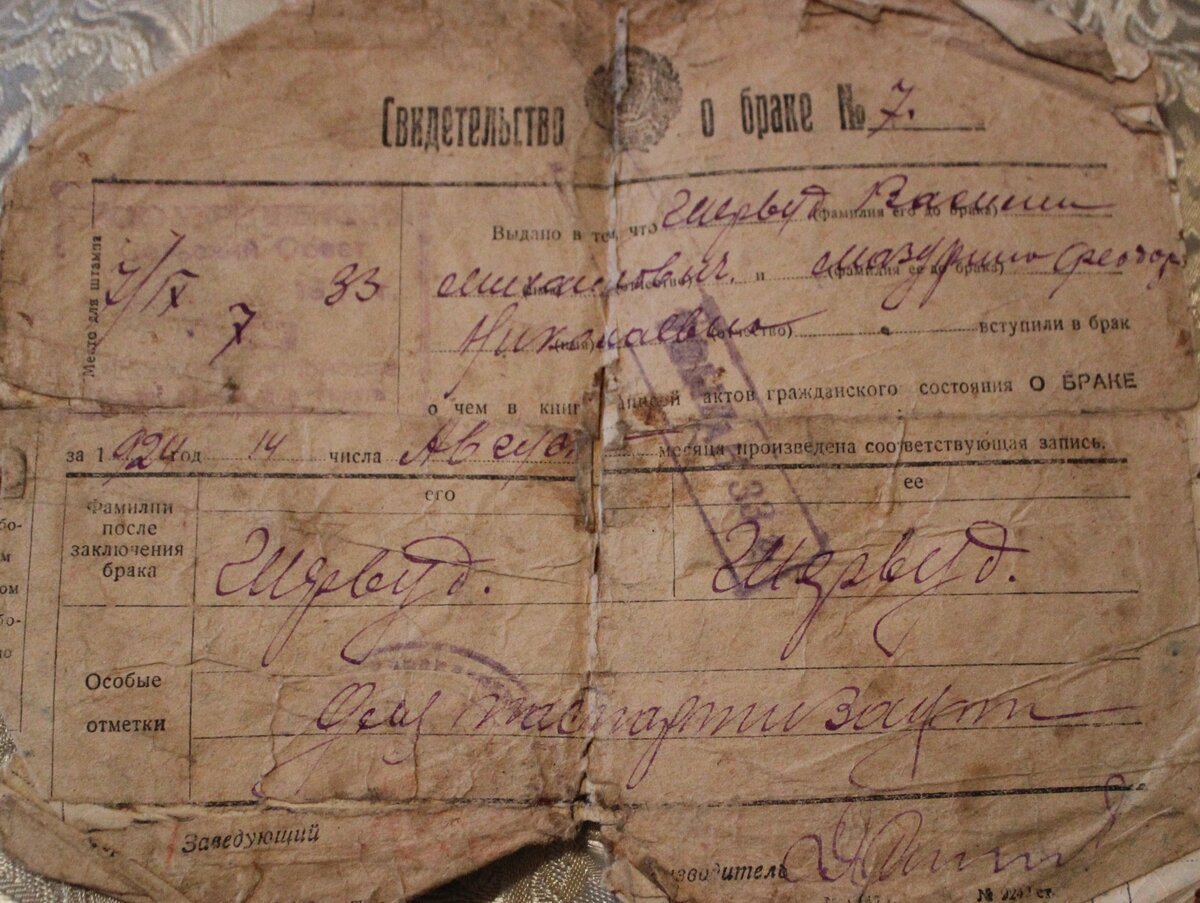 Свидетельство о браке № 7.
Место для штампа
Совет
7/IX 33
7
Выдано в том, что Шервуд Василий
(фамилия его до брака)
Михайлович. и Мазурина Феодор
(отчество) (фамилия ее до брака)
Николаевна вступили в брак
(имя) (отчество)
о чем в книге записей актов гражданского состояния О БРАКЕ
за 1924 год 14 числа Августа месяца произведена соответствующая запись.
Фамилии после заключения брака
его
ее
Шервуд. Шервуд.
Особые отметки
Для паспортизации
Заведующий
№ 9242 ст.